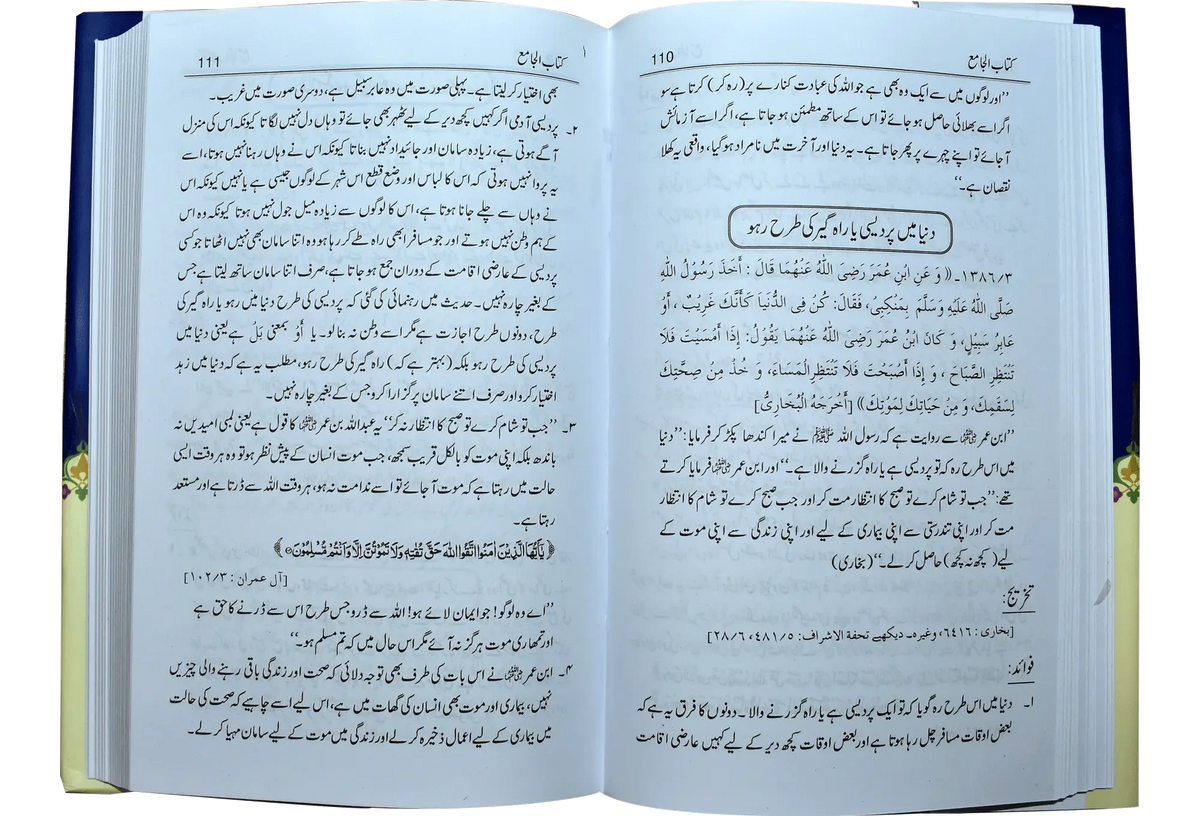 110
کتاب الجامع
’’اور لوگوں میں سے ایک وہ بھی ہے جو اللہ کی عبادت کنارے پر (رہ کر) کرتا ہے سو
اگر اسے بھلائی حاصل ہو جائے تو اس کے ساتھ مطمئن ہو جاتا ہے، اگر اسے آزمائش
آ جائے تو اپنے چہرے پر پھر جاتا ہے۔ یہ دنیا اور آخرت میں نامراد ہو گیا، واقعی یہ کھلا
نقصان ہے۔‘‘
دنیا میں پردیسی یا راہ گیر کی طرح رہو
١٣٨٦/٣۔ (( وَ عَنِ ابْنِ عُمَرَ رَضِيَ اللّٰهُ عَنْهُمَا قَالَ : أَخَذَ رَسُوْلُ اللّٰهِ
صَلَّى اللّٰهُ عَلَيْهِ وَسَلَّمَ بِمَنْكِبِيْ، فَقَالَ: كُنْ فِي الدُّنْيَا كَأَنَّكَ غَرِيْبٌ ، أَوْ
عَابِرُ سَبِيْلٍ، وَ كَانَ ابْنُ عُمَرَ رَضِيَ اللّٰهُ عَنْهُمَا يَقُوْلُ: إِذَا أَمْسَيْتَ فَلَا
تَنْتَظِرِ الصَّبَاحَ ، وَ إِذَا أَصْبَحْتَ فَلَا تَنْتَظِرِ الْمَسَاءَ، وَ خُذْ مِنْ صِحَّتِكَ
لِسَقَمِكَ، وَ مِنْ حَيَاتِكَ لِمَوْتِكَ )) [أَخْرَجَهُ الْبُخَارِيُّ]
’’ابن عمر رضی اللہ عنہما سے روایت ہے کہ رسول اللہ ﷺ نے میرا کندھا پکڑ کر فرمایا: ’’دنیا
میں اس طرح رہ کہ تو پردیسی ہے یا راہ گزرنے والا ہے۔‘‘ اور ابن عمر رضی اللہ عنہما فرمایا کرتے
تھے: ’’جب تو شام کرے تو صبح کا انتظار مت کر اور جب صبح کرے تو شام کا انتظار
مت کر اور اپنی تندرستی سے اپنی بیماری کے لیے اور اپنی زندگی سے اپنی موت کے
لیے (کچھ نہ کچھ) حاصل کر لے۔‘‘ (بخاری)
تخریج:
[بخاری : ٦٤١٦، وغیرہ۔ دیکھیے تحفة الاشراف: ٤٨١/٥، ٢٨/٦]
فوائد:
۱۔ دنیا میں اس طرح رہ گویا کہ تو ایک پردیسی ہے یا راہ گزرنے والا۔ دونوں کا فرق یہ ہے کہ
بعض اوقات مسافر چل رہا ہوتا ہے اور بعض اوقات کچھ دیر کے لیے کہیں عارضی اقامت
111
کتاب الجامع
بھی اختیار کر لیتا ہے۔ پہلی صورت میں وہ عابر سبیل ہے، دوسری صورت میں غریب۔
۲۔ پردیسی آدمی اگر کہیں کچھ دیر کے لیے ٹھہر بھی جائے تو وہاں دل نہیں لگاتا کیونکہ اس کی منزل
آگے ہوتی ہے، زیادہ سامان اور جائیداد نہیں بناتا کیونکہ اس نے وہاں رہنا نہیں ہوتا، اسے
یہ پروا نہیں ہوتی کہ اس کا لباس اور وضع قطع اس شہر کے لوگوں جیسی ہے یا نہیں کیونکہ اس
نے وہاں سے چلے جانا ہوتا ہے، اس کا لوگوں سے زیادہ میل جول نہیں ہوتا کیونکہ وہ اس
کے ہم وطن نہیں ہوتے اور جو مسافر ابھی راہ طے کر رہا ہو وہ اتنا سامان بھی نہیں اٹھاتا جو کسی
پردیسی کے عارضی اقامت کے دوران جمع ہو جاتا ہے، صرف اتنا سامان ساتھ لیتا ہے جس
کے بغیر چارہ نہیں۔ حدیث میں رہنمائی کی گئی کہ پردیسی کی طرح دنیا میں رہو یا راہ گیر کی
طرح، دونوں طرح اجازت ہے مگر اسے وطن نہ بنا لو۔ یا أَوْ بمعنی بَلْ ہے یعنی دنیا میں
پردیسی کی طرح رہو بلکہ (بہتر ہے کہ) راہ گیر کی طرح رہو، مطلب یہ ہے کہ دنیا میں زہد
اختیار کرو اور صرف اتنے سامان پر گزارا کرو جس کے بغیر چارہ نہیں۔
۳۔ ’’جب تو شام کرے تو صبح کا انتظار نہ کر‘‘ یہ عبداللہ بن عمر رضی اللہ عنہما کا قول ہے یعنی لمبی امیدیں نہ
باندھ بلکہ اپنی موت کو بالکل قریب سمجھ، جب موت انسان کے پیش نظر ہو تو وہ ہر وقت ایسی
حالت میں رہتا ہے کہ موت آ جائے تو اسے ندامت نہ ہو، ہر وقت اللہ سے ڈرتا ہے اور مستعد
رہتا ہے۔
﴿ يٰۤاَيُّهَا الَّذِيْنَ اٰمَنُوا اتَّقُوا اللّٰهَ حَقَّ تُقٰتِهٖ وَلَا تَمُوْتُنَّ اِلَّا وَاَنْتُمْ مُّسْلِمُوْنَ ﴾
[آل عمران : ١٠٢/٣]
’’اے وہ لوگو! جو ایمان لائے ہو! اللہ سے ڈرو جس طرح اس سے ڈرنے کا حق ہے
اور تمھاری موت ہرگز نہ آئے مگر اس حال میں کہ تم مسلم ہو۔‘‘
۴۔ ابن عمر رضی اللہ عنہما نے اس بات کی طرف بھی توجہ دلائی کہ صحت اور زندگی باقی رہنے والی چیزیں
نہیں، بیماری اور موت بھی انسان کی گھات میں ہے، اس لیے اسے چاہیے کہ صحت کی حالت
میں بیماری کے لیے اعمال ذخیرہ کر لے اور زندگی میں موت کے لیے سامان مہیا کر لے۔